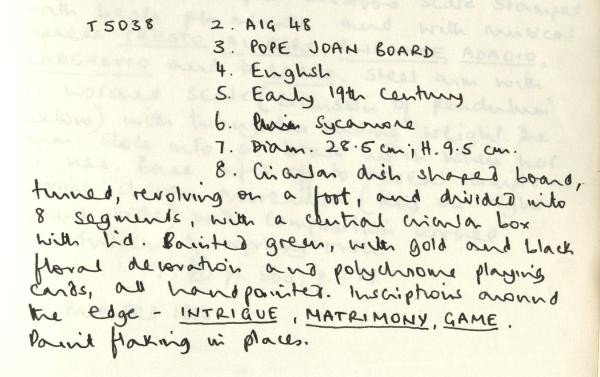 T5038 2. AIG 48
3. POPE JOAN BOARD
4. English
5. Early 19th century
6. Sycamore
7. Diam. 28.5 cm; H. 9.5 cm.
8. Circular dish shaped board,
turned, revolving on a foot, and divided into
8 segments with a central circular box
with lid. Painted green, with gold and black
floral decoration and polychrome playing
cards, all handpainted. Inscriptions around
the edge - INTRIGUE, MATRIMONY, GAME.
Paint flaking in places.